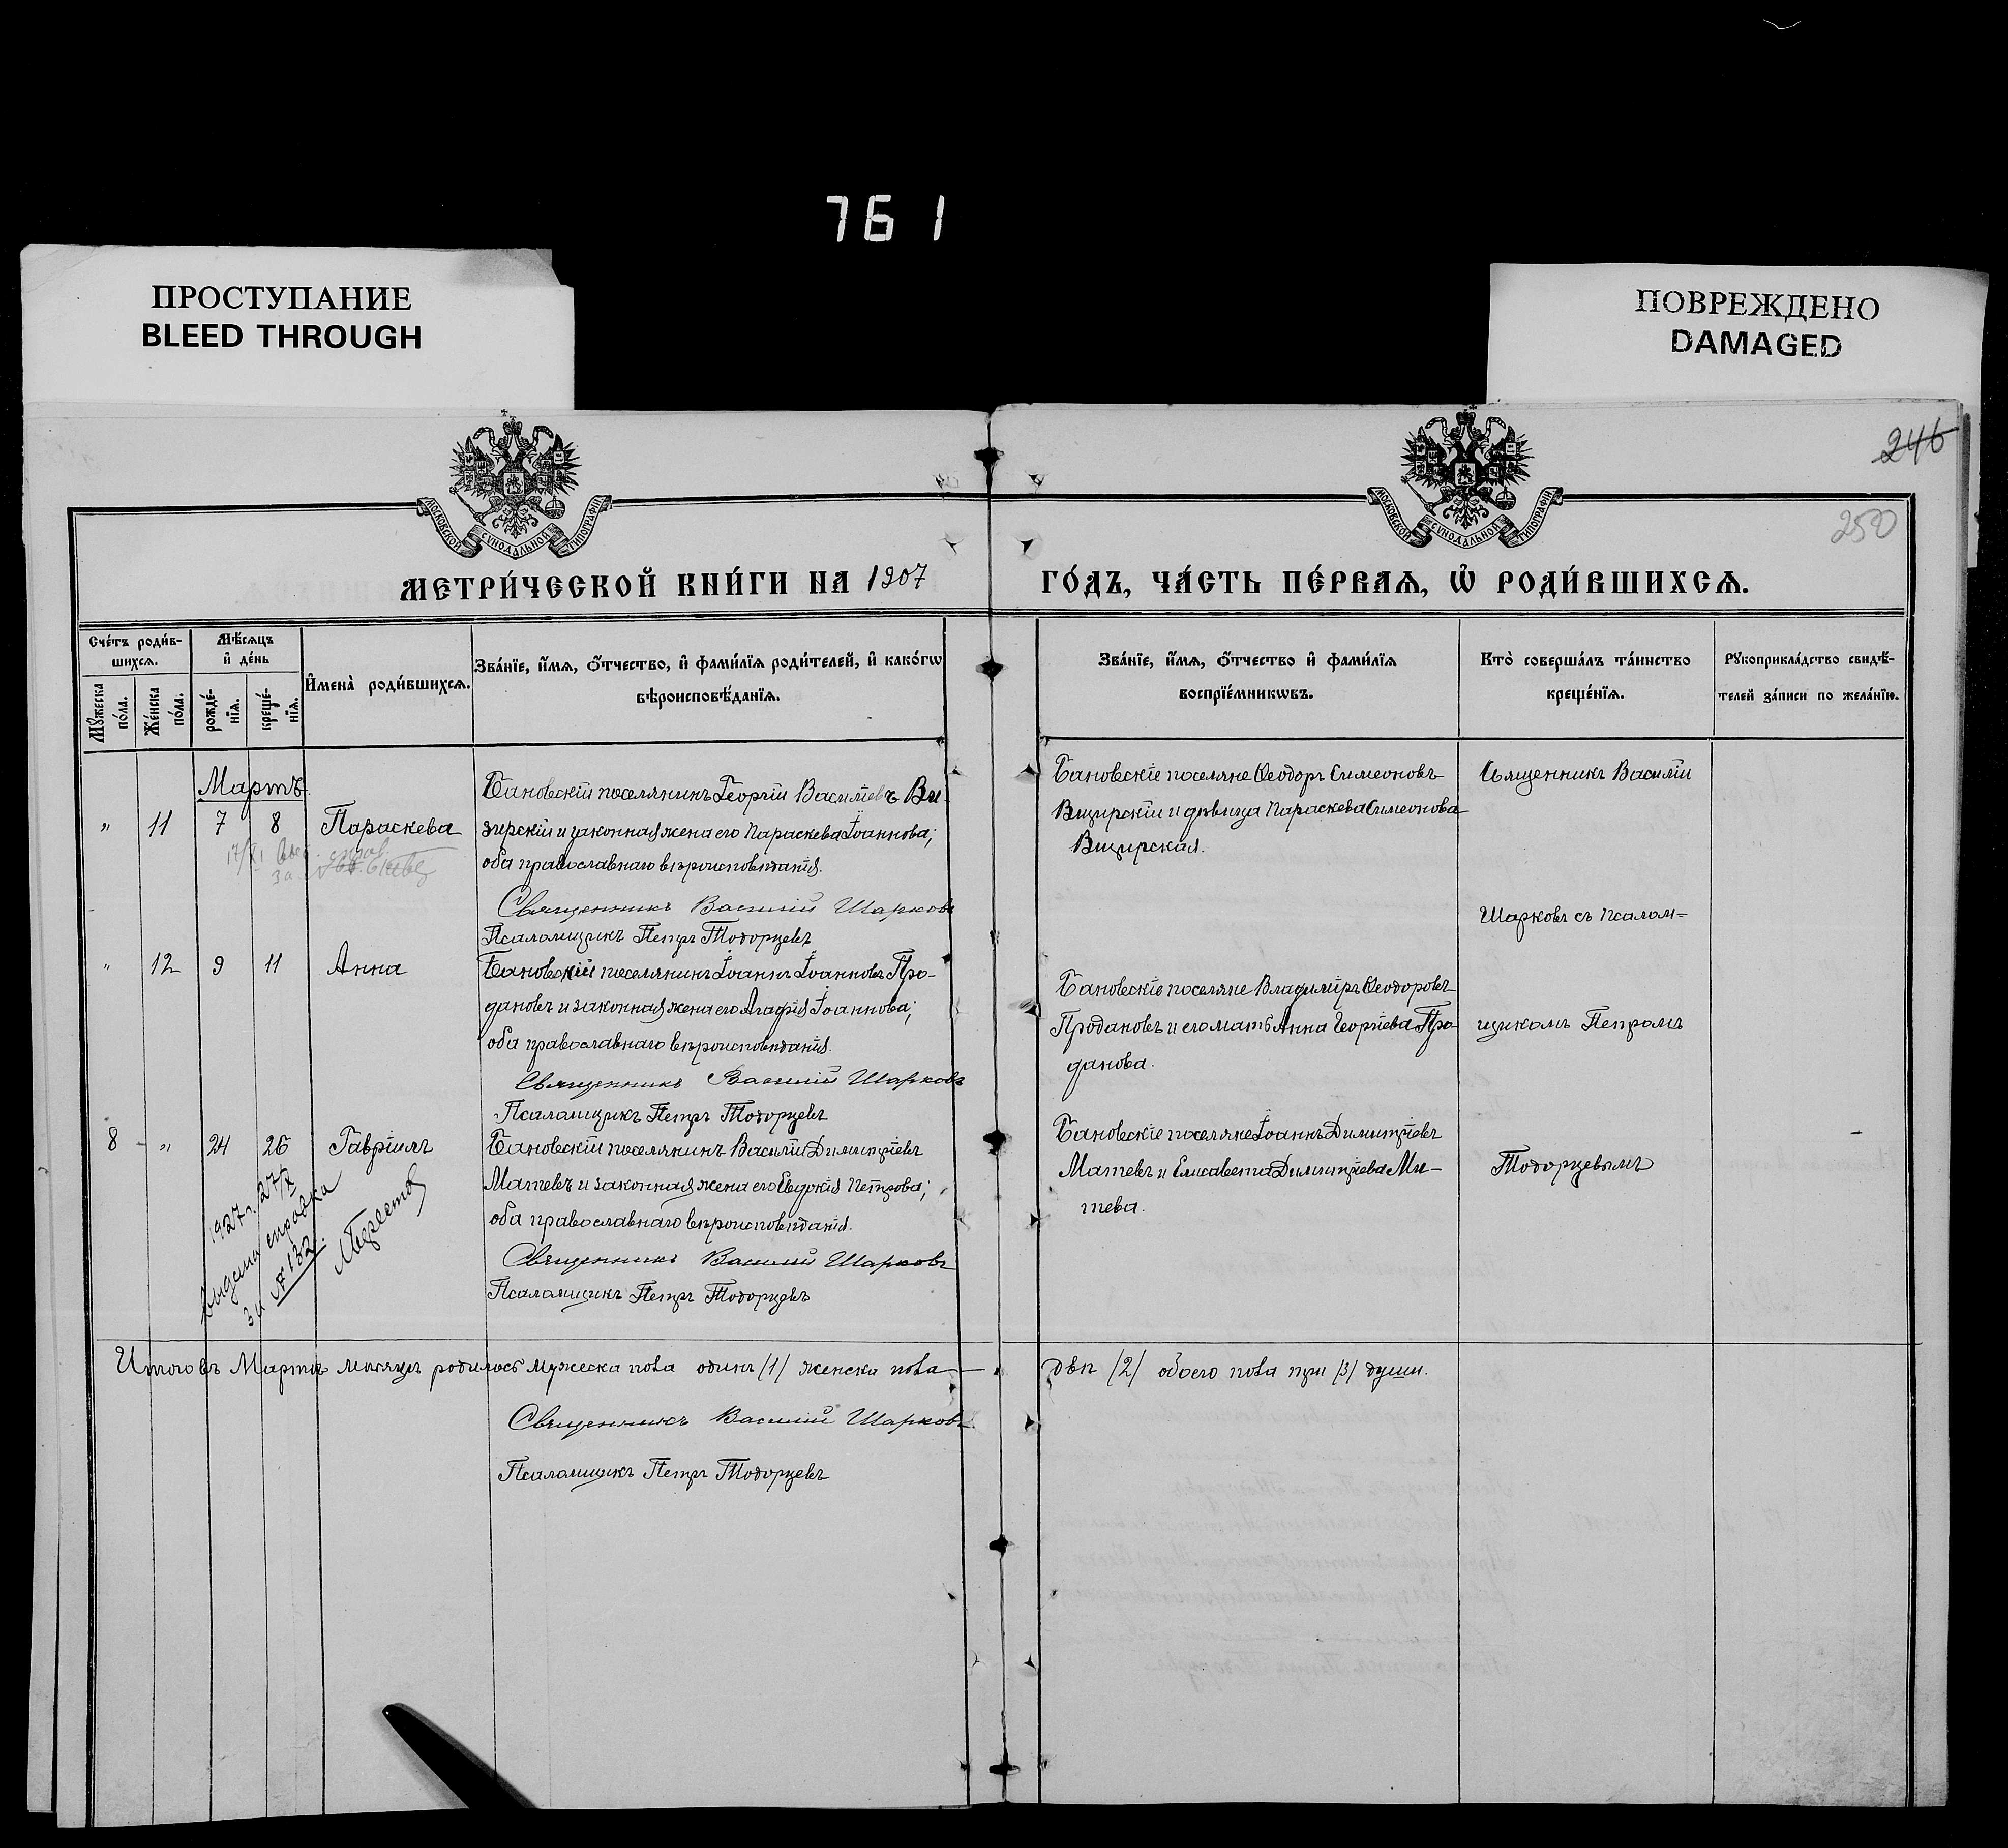 761
ПРОСТУПАНИЕ
BLEED THROUGH
ПОВРЕЖДЕНО
DAMAGED
МОСКОВСКОЙ СѴНОДАЛЬНОЙ ТИПОГРАФІИ
МОСКОВСКОЙ СѴНОДАЛЬНОЙ ТИПОГРАФІИ
246
250
МЕТРИ́ЧЕСКОЙ КНИ́ГИ НА 1907
ГО́ДЪ, ЧА́СТЬ ПЕ́РВАѦ, Ѡ҆ РОДИ́ВШИХСѦ.
Сче́тъ роди́в-
шихсѧ.
Мѣ́сѧцъ
и҆ де́нь
Мꙋ́жеска
по́ла.
Же́нска
по́ла.
рожде́-
нїѧ.
креще́-
нїѧ.
И҆мена̀ роди́вшихсѧ.
Зва́нїе, и҆́мѧ, ѻ҆́тчество, и҆ фами́лїѧ роди́телей, и҆ како́гѡ
вѣроисповѣ́данїѧ.
Зва́нїе, и҆́мѧ, ѻ҆́тчество и҆ фами́лїѧ
воспрїе́мникѡвъ.
Кто̀ соверша́лъ та́инство
креще́нїѧ.
Рꙋкоприкла́дство свидѣ́-
телей за́писи по жела́нїю.
Мартъ
" 11 7 8 Параскева
Бановскій поселянинъ Георгій Василіевъ Ви-
зирскій и законная жена его Параскева Іоаннова;
оба православнаго вѣроисповѣданія.
Священникъ Василій Шарковъ
Псаломщикъ Петръ Тодорцевъ
Бановскіе поселяне Ѳеодоръ Симеоновъ
Визирскій и дѣвица Параскева Симеонова
Визирская.
Священникъ Василій
Шарковъ съ псалом=
" 12 9 11 Анна
Бановскій поселянинъ Іоаннъ Іоанновъ Про-
дановъ и законная жена его Агафія Іоаннова;
оба православнаго вѣроисповѣданія.
Священникъ Василій Шарковъ
Псаломщикъ Петръ Тодорцевъ
Бановскіе поселяне Владиміръ Ѳеодоровъ
Продановъ и его мать Анна Георгіева Про-
данова.
щикомъ Петромъ
8 " 24 26 Гавріилъ
Бановскій поселянинъ Василій Димитріевъ
Матевъ и законная жена его Евдокія Петрова;
оба православнаго вѣроисповѣданія.
Священникъ Василій Шарковъ
Псаломщикъ Петръ Тодорцевъ
Бановскіе поселяне Іоаннъ Димитріевъ
Матевъ и Елисавета Димитріева Ма-
тева.
Тодорцевымъ
1927 г. 27/X
выдана справка
за № 132.
Итого въ Мартѣ мѣсяцѣ родилось мужеска пола одинъ /1/ женска пола
двѣ /2/ обоего пола три /3/ души.
Священникъ Василій Шарковъ
Псаломщикъ Петръ Тодорцевъ